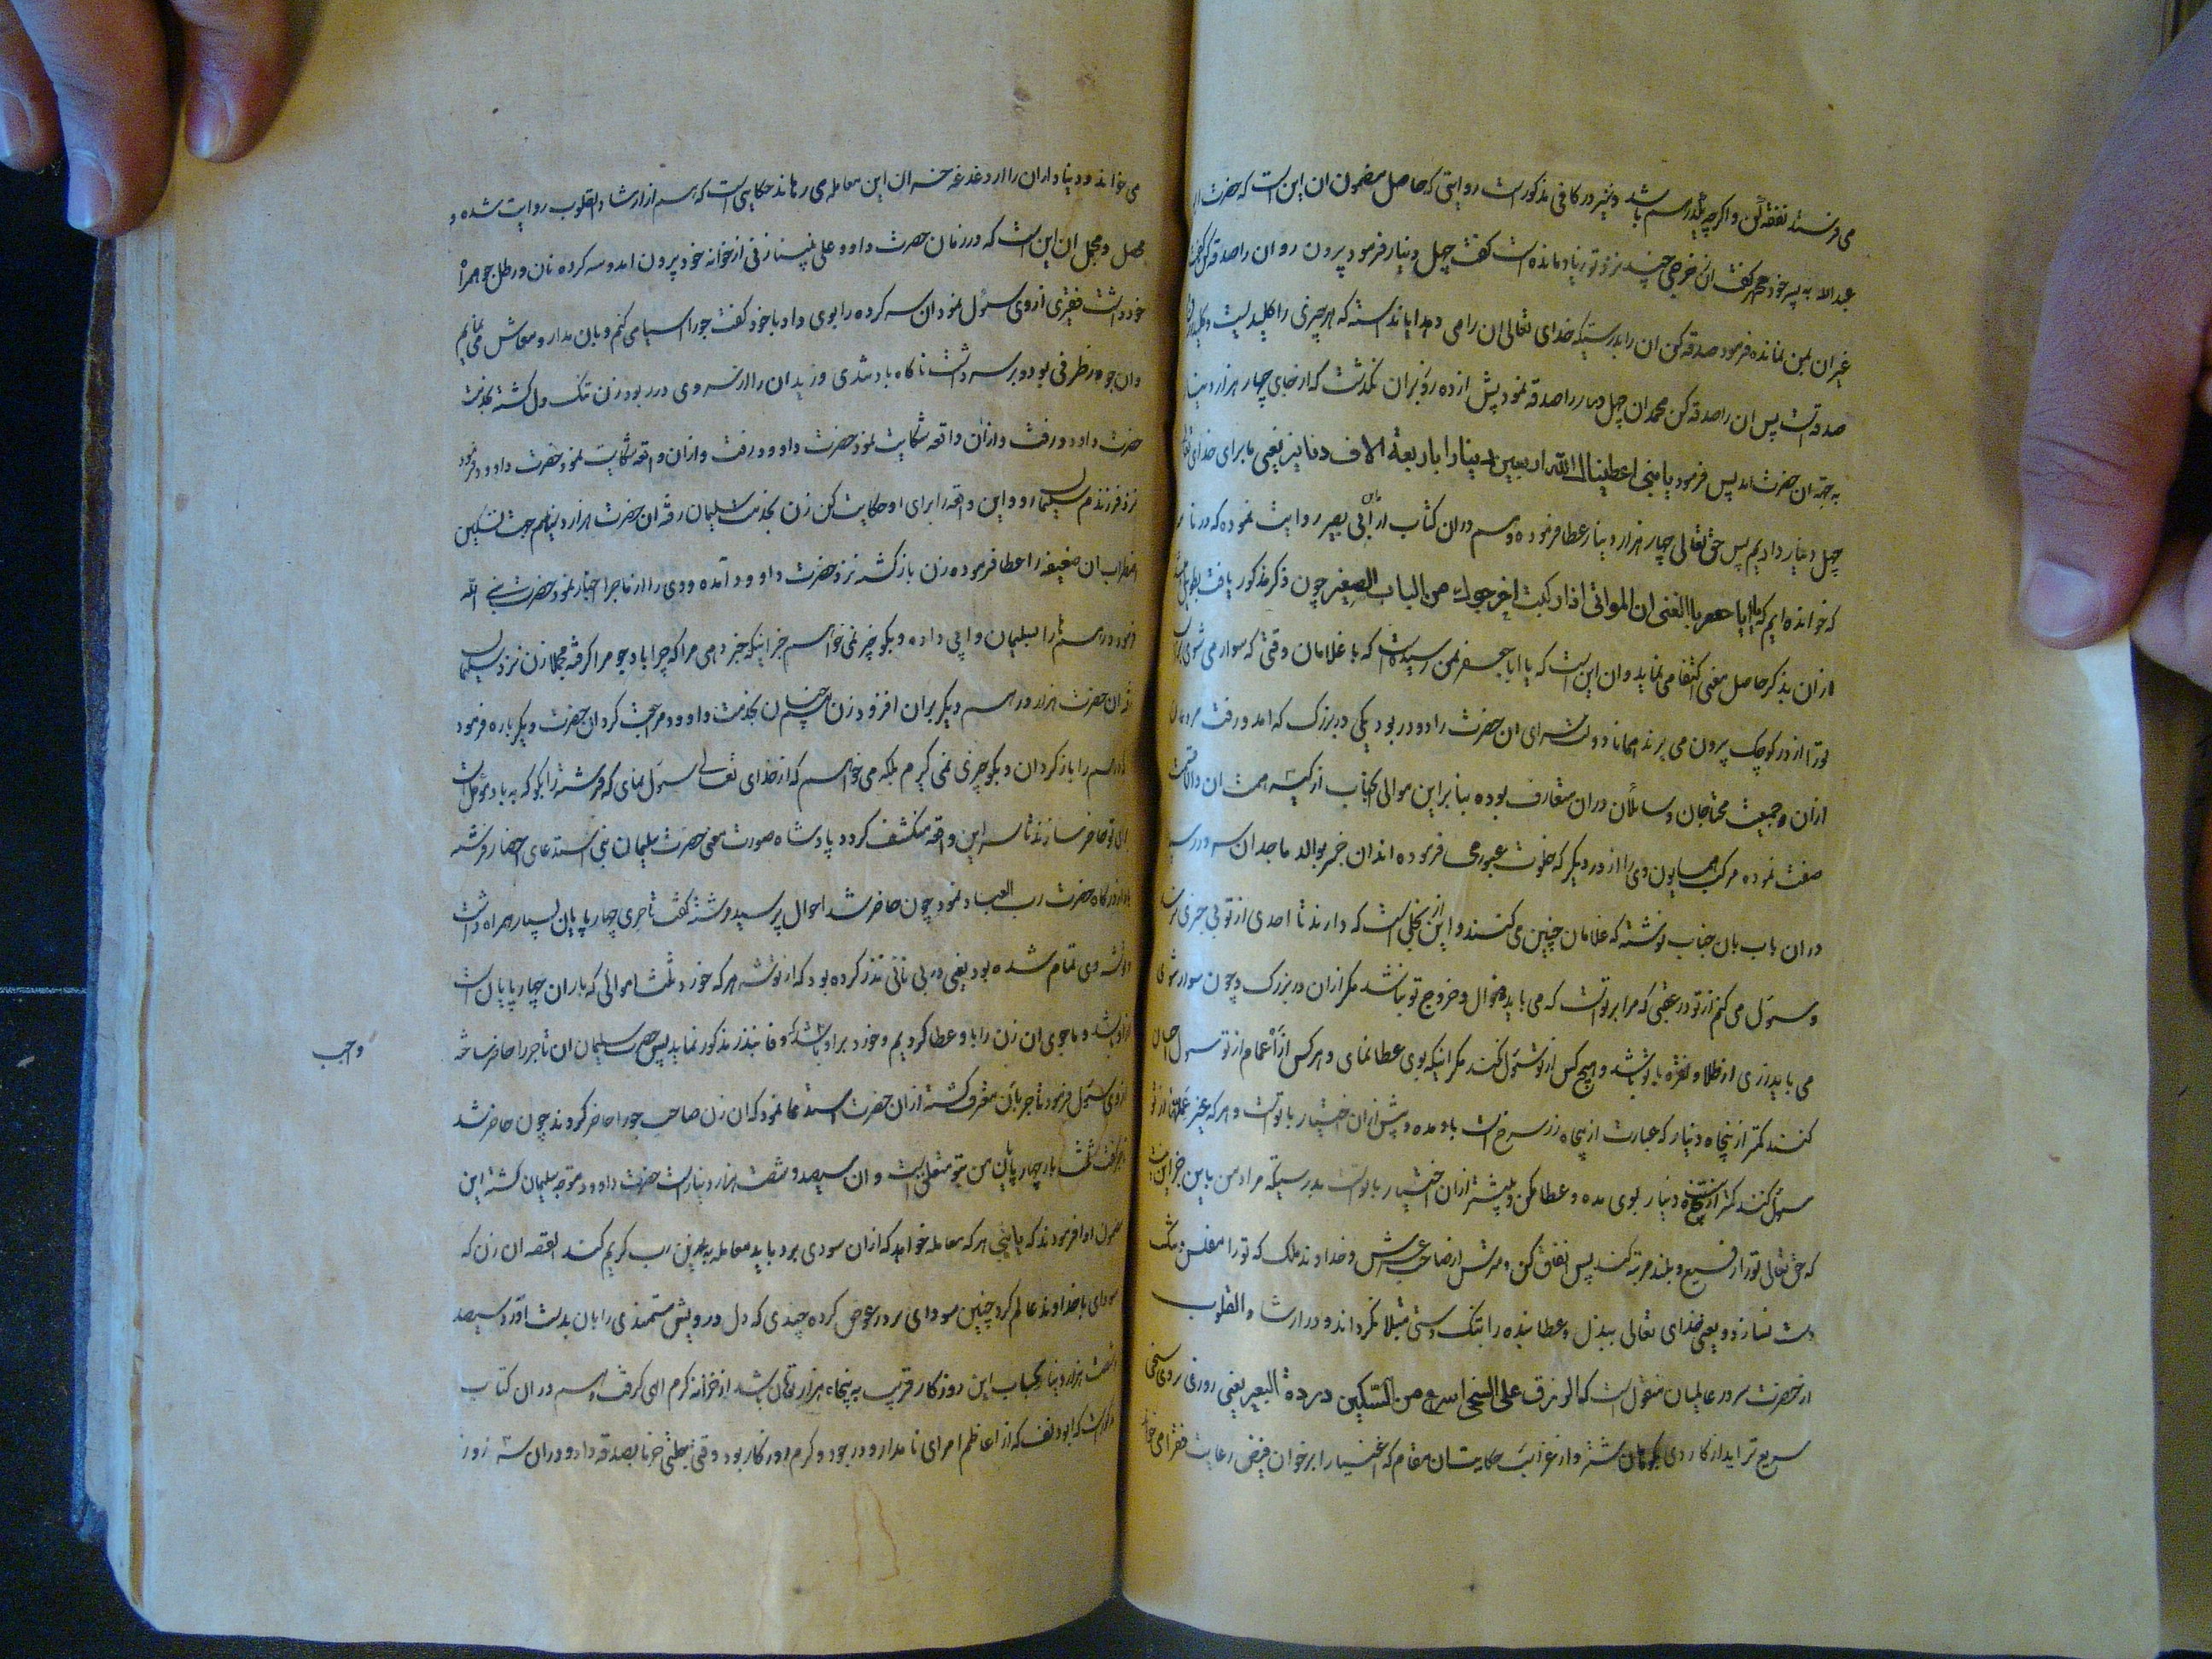 می فرستد نفقه کن و اگرچه یکدرهم باشد و نیز در کافی مذکور است روایتی که حاصل مضمون ان این است که حضرت ابی
عبدالله به پسر خود محمد گفت ان خرجی چند نزد تو زیاد مانده است گفت چهل دینار فرمود بیرون رو ان را صدقه کن گفت
غیر ان بمن نمانده فرمود صدقه کن ان را بدرستیکه خدای تعالی ان را می دهد ایا ندانسته که هر چیزی را کلیدیست و کلید
صدقه است پس ان را صدقه کن محمد ان چهل دینار را صدقه نمود پیش از ده روز بران نگذشت که از جای چهار هزار دینار
به جهة ان حضرت امد پس فرمود یا بنی اعطینا لله اربعین دینارا باربعة الاف دنانیر یعنی ما برای خدای تعالی
چهل دینار دادیم پس حق تعالی چهار هزار دینار عطا فرموده و هم در ان کتاب از ابی بصیر روایت نموده که در نامه
که خوانده ایم که یا ابا جعفر بلغنی ان الموالی اذا رکبت اخرجوك من الباب الصغیر چون ذکر مذکور یافت بطول
ازان بذکر حاصل معنی اکتفا می نماید وان این است که یا ابا جعفر بمن رسیده است که با غلامان وقتی که سوار می شوی
تورا از در کوچک بیرون می برند همانا دولتسرای ان حضرت را دو در بود یکی در بزرگ که امد و رفت مردمان
ازان و جمعیت محتاجان و سائلان دران متعارف بوده بنابراین موالی انجناب از کیسه همت ان والا
صفت نموده مرکب همایون وی را از در دیگر که خلوت عبور می فرموده اند ان خبر بوالد ماجد ان سرور رسید
دران باب بان جناب نوشته که غلامان چنین می کنند و این از بخلی است که دارند تا احدی از تو بی خبری
و سؤل می کنم از تو در بحقی که مرا بر تو است که می باید دخول و خروج تو نباشد مگر ازان در بزرگ و چون سوار شوی
می باید زری از طلا و نقره با تو باشد و هیچ کس از تو سؤل نکند مگر اینکه بوی عطا نمای و هر کس از اعمام از تو سؤل
کنند کمتر از پنجاه دینار که عبارت از پنجاه زر سرخ است باو مده و بیش ازان اختیار با تو است و هر که از عماة از تو
سؤل کنند کمتر از بیست و پنج دینار بوی مده و عطا مکن و بیشتر ازان اختیار با تو است بدرستیکه مراد من باین جز این
که حق تعالی تورا رفیع و بلند مرتبه کند پس انفاق کن و مترس از صاحب عرش و خداوند ملک که تورا مفلس و
دست نسازد و یعنی خدای تعالی ببذل و عطا بنده را بتنک دستی مبتلا نگرداند و در ارشاد القلوب
از حضرت سرور عالمیان منقول است که الرزق علی السخی اسرع من السکین ذروة البعیر یعنی روزی بروی سخی
سریع تر اید از کارد وی بکوهان شتر و از غرایب حکایت ان مقام که اغنیا را بر خوان فیض رعایت فقرا می خواند
می خواند و دنیاداران را از دغدغه خسران این معامله می رهاند حکایتی است که هم از ارشاد القلوب روایت شده و
محصل و مجمل ان این است که در زمان حضرت داوود علی نبینا زنی از خوانه خود بیرون امد و سه کرده نان و رطل جو همراه
خود داشت فقیری از وی سؤل نمود ان سه کرده را بوی داد با خود گفت جو را اسیا می کنم و بان مدار و معاش می نمایم
وان جو در ظرفی بود و بر سر داشت ناکاه باد تندی وزید ان را از سر وی در ربود زن تنک دل کشته بخدمت
حضرت داوود رفت و ازان واقعه شکایت نمود حضرت داوود رفت و ازان واقعه شکایت نمود حضرت داوود فرمود
نزد فرزندم سلیمان رو و این واقعه را برای او حکایت کن زن بخدمت سلیمان رفته ان حضرت هزار درهم جهت تسکین
اضطراب ان ضعیفه را عطا فرموده زن باز کشته نزد حضرت داوود آمده وی را از ماجرا اخبار نمود حضرت نبی الله
فرمود درهم را بسلیمان واپس داده و بگو چیز نمی خواهم جز اینکه خبر دهی مرا که چرا باد جو مرا گرفته مجملا زن نزد سلیمان
شد ان حضرت هزار درهم دیگر بران افزود زن همچنان بخدمت داوود مراجعت کرد ان حضرت دیگر باره فرمود
درهم را باز کردان و بگو چیزی نمی گیرم بلکه می خواهم که از خدای تعالی سؤل نمای که فرشته را بکو که به باد مؤکل است
برای تو حاضر سازند تا سر این واقعه منکشف کردد پادشاه صورت معنی حضرت سلیمان نبی استدعای احضار فرشته
باد از درگاه حضرت رب العباد نمود چون حاضر شد احوال پرسید فرشته گفت تاجری چهارپایان بسیار همراه داشت
و توشه وی تمام شده بود یعنی در بی نانی نذر کرده بود که از توشه هرکه خورد ثلث اموالی که باران چهارپایان است
ازاو باشد و ما جوی ان زن را باو عطا کردیم و خورد بر او باشد که وفا بنذر مذکور نماید پس حضرت سلیمان ان تاجر را حاضر ساخته
از وی سؤل فرمود تاجر بان معترف کشته ازان حضرت استدعا نمود که ان زن صاحب جو را حاضر کردند چون حاضر شد
تاجر گفت ثلث بار چهارپایان من بتو متعلق است وان سیصد و شصت هزار دینار است حضرت داوود متوجه سلیمان کشته این
سؤل ادا فرمودند که یا بنی هر که معامله خواهد که ازان سودی برد باید معامله به چنین رب کریم کند القصه ان زن که
سودای با خداوند عالم کرد چنین سودای بر در عوض کرده چندی که دل درویش مستمندی را بان بدست اورد سیصد
و شصت هزار دینار بحساب این روزکار قریب به پنجاه هزار تومان باشد از خزانه کرم الهی گرفت و هم دران کتاب
مذکور است که ابودلف که از اعاظم امرای نامدار و در جود و کرم روزگار بود وقتی بطبقی خرما بصدقه داد و دران سه روز
واجب